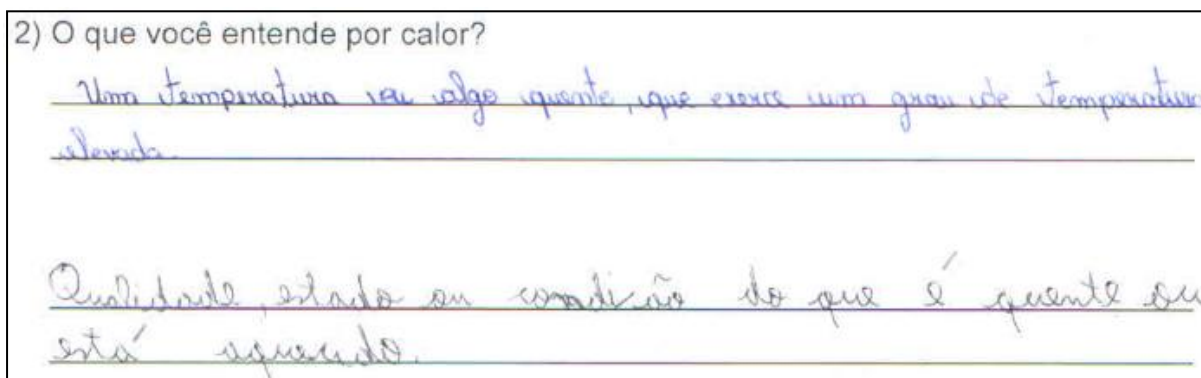 2) O que você entende por calor?
Uma temperatura ou algo quente, que exerce um grau de temperatura
elevada.
Qualidade, estado ou condição do que é quente ou
está aquecido.